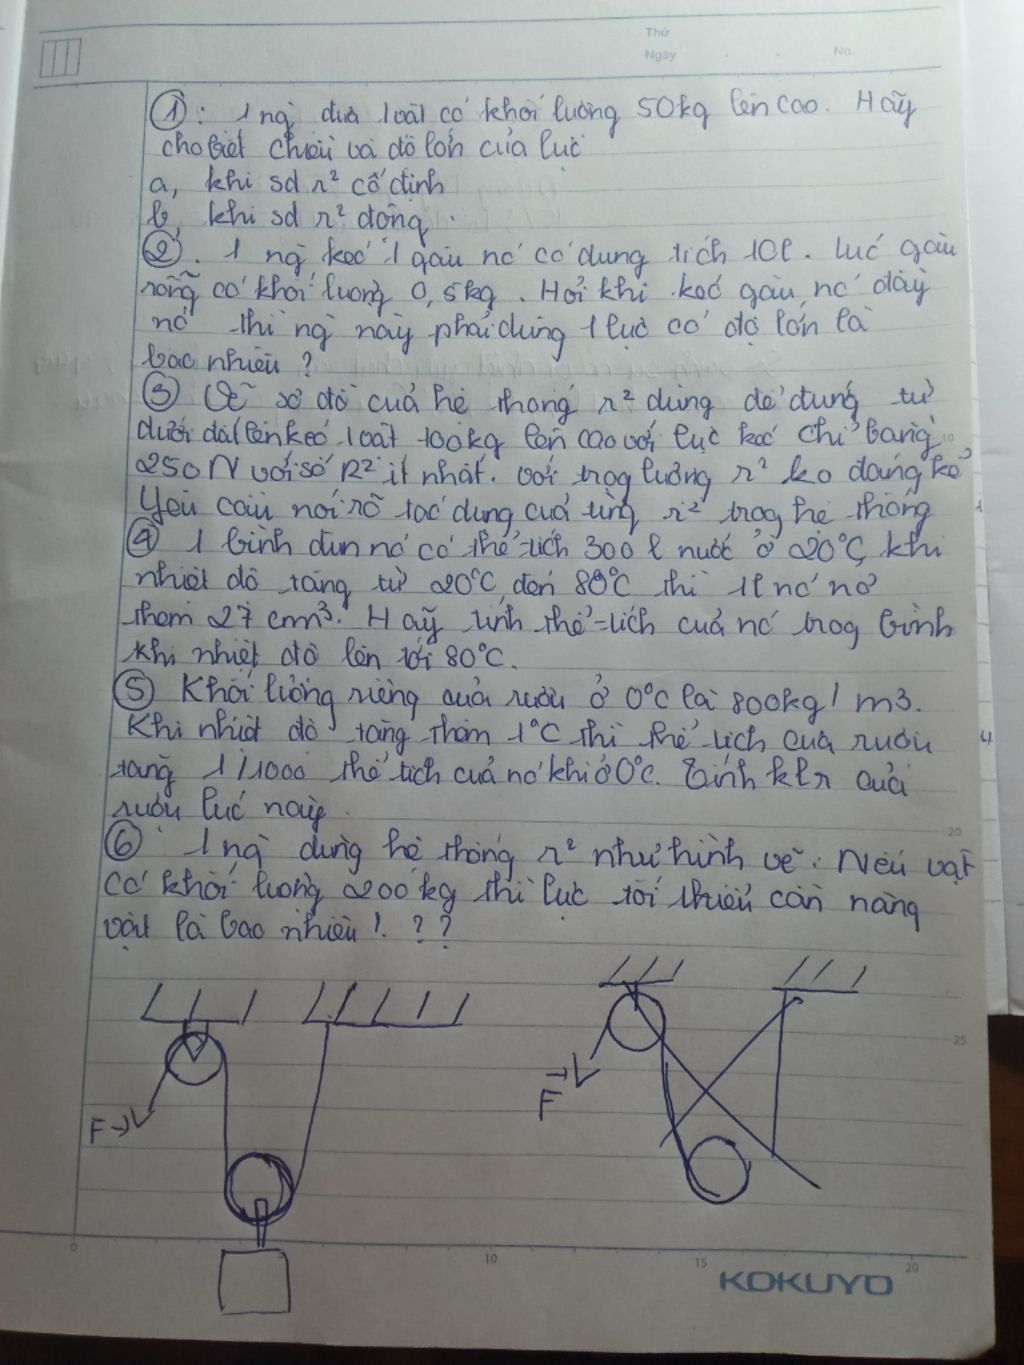 Thứ
Ngày . . No.
①: 1 ng` đưa 1 vật có khối lượng 50kg lên cao. Hãy
cho biết chiều và độ lớn của lực
a, khi sd r² cố định
b, khi sd r² động.
②. 1 ng` kéo 1 gàu nc´ có dung tích 10l. Lúc gàu
rỗng có khối lượng 0,5kg. Hỏi khi kéo gàu nc´ đầy
nc´ thì ng` này phải dùng 1 lực có độ lớn là
bao nhiêu?
③ Vẽ sơ đồ của hệ thống r² dùng để đứng từ
dưới đất lên kéo 1 vật 100kg lên cao với lực kéo chỉ bằng
250N với số R² ít nhất. với trọg lượng r² ko đáng kể
Yêu cầu nói rõ tác dụng của từng r² trog hệ thống
④ 1 bình đun nc´ có thể tích 300 l nước ở 20°C, khi
nhiệt độ tăng từ 20°C đến 80°C thì 1l nc´ nở
thêm 27 cm³. Hãy tính thể tích của nc´ trog bình
khi nhiệt độ lên tới 80°C.
⑤ Khối lượng riêng của rượu ở 0°C là 800kg/m3.
Khi nhiệt độ tăng thêm 1°C thì thể tích của rượu
tăng 1/1000 thể tích của nó khi ở 0°C. Tính klr của
rượu lúc này.
⑥ 1 ng` dùng hệ thống r² như hình vẽ. Nếu vật
có khối lượng 200kg thì lực tối thiểu cần nâng
vật là bao nhiêu!. ??
F→
F→
0 10 15 20
10
20
25
KOKUYO